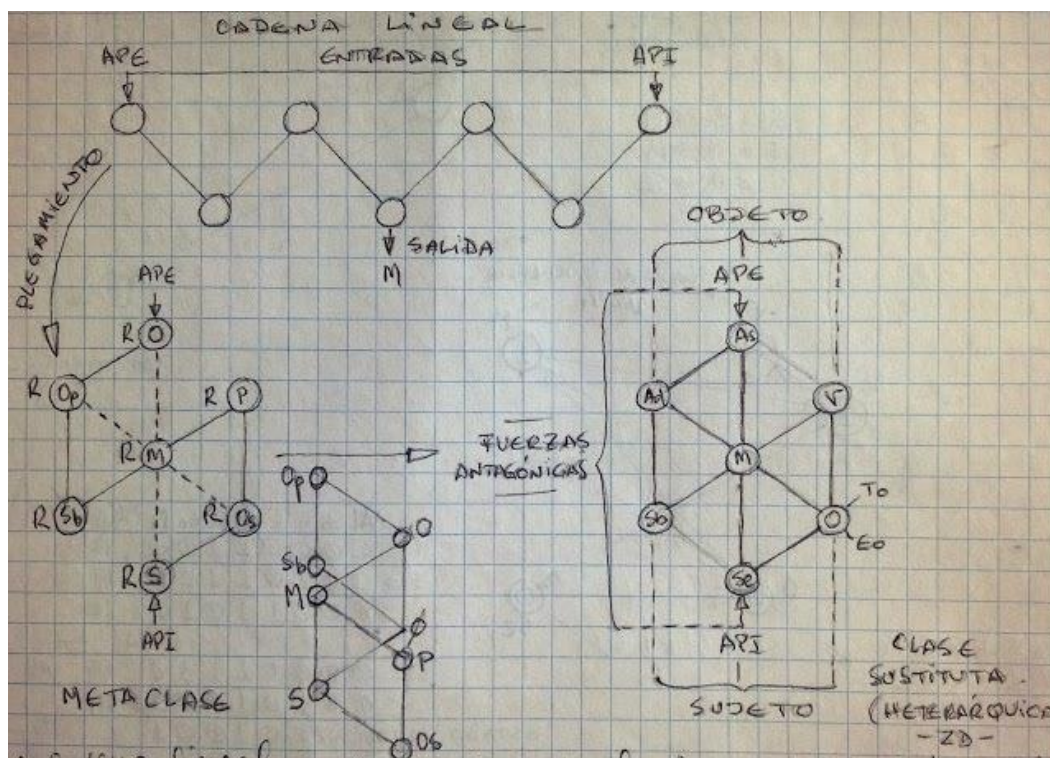 CADENA LINEAL
APE ENTRADAS API
PLEGAMIENTO
SALIDA
M
APE
R O
R Op
R P
R M
R Sb
R Os
R S
API
METACLASE
Op
O
Sb
M
P
S
Os
FUERZAS
ANTAGÓNICAS
OBJETO
APE
As
Ad
V
M
Sb
O
To
Eo
Se
API
SUJETO
CLASE
SUSTITUTA
(HETERÁRQUICA
-2D-